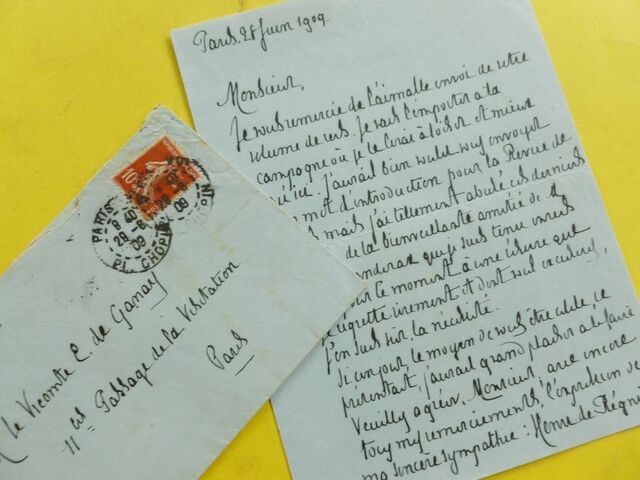 Paris. 28 juin 1909.
Monsieur,
Je vous remercie de l'aimable envoi de votre
volume de vers. Je vais l'emporter à la
campagne où je le lirai à loisir et mieux
qu'ici. J'aurais bien voulu vous envoyer
mot d'introduction pour la Revue de
mais j'ai tellement abusé ces derniers
de la bienveillante amitié de
que je suis tenu envers
pour le moment à une réserve que
je regrette vivement et dont vous excuserez,
j'en suis sûr, la nécessité.
Si un jour le moyen de vous être utile, se
présentait, j'aurais grand plaisir à le faire
Veuillez agréer, Monsieur, avec encore
tous mes remerciements, l'expression de
ma sincère sympathie: Henri de Régnier
10
PARIS
9 40
28-6
09
PL. CHOPIN
Le Vicomte E. de Ganay
11 bis Passage de la Visitation
Paris